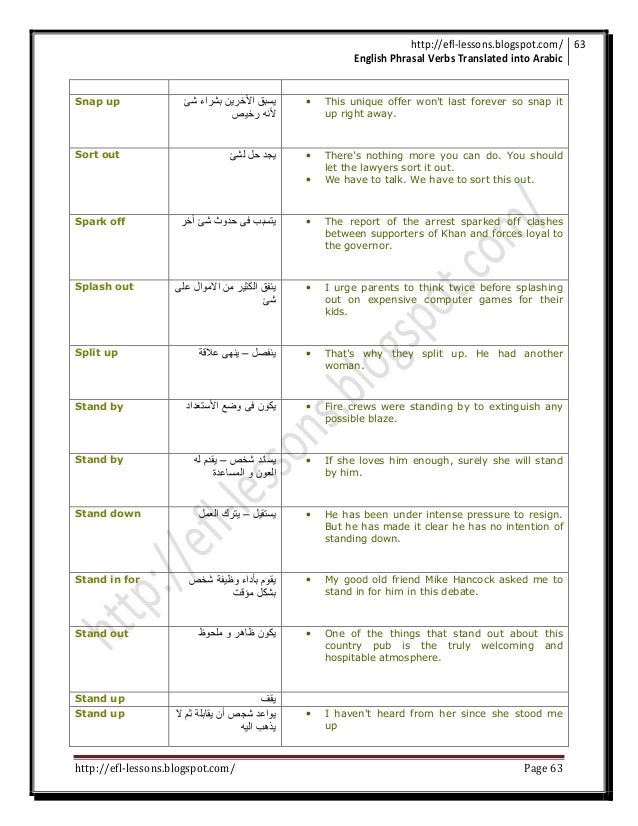 http://efl-lessons.blogspot.com/ 63
English Phrasal Verbs Translated into Arabic
Snap up
يسبق الأخرين بشراء شئ
لأنه رخيص
• This unique offer won't last forever so snap it
up right away.
Sort out
يجد حل لشئ
• There's nothing more you can do. You should
let the lawyers sort it out.
• We have to talk. We have to sort this out.
Spark off
يتسبب فى حدوث شئ أخر
• The report of the arrest sparked off clashes
between supporters of Khan and forces loyal to
the governor.
Splash out
ينفق الكثير من الاموال على
شئ
• I urge parents to think twice before splashing
out on expensive computer games for their
kids.
Split up
ينفصل – ينهى علاقة
• That's why they split up. He had another
woman.
Stand by
يكون فى وضع الأستعداد
• Fire crews were standing by to extinguish any
possible blaze.
Stand by
يساند شخص – يقدم له
العون و المساعدة
• If she loves him enough, surely she will stand
by him.
Stand down
يستقيل – يترك العمل
• He has been under intense pressure to resign.
But he has made it clear he has no intention of
standing down.
Stand in for
يقوم بأداء وظيفة شخص
بشكل مؤقت
• My good old friend Mike Hancock asked me to
stand in for him in this debate.
Stand out
يكون ظاهر و ملحوظ
• One of the things that stand out about this
country pub is the truly welcoming and
hospitable atmosphere.
Stand up
يقف
Stand up
يواعد شخص أن يقابلة ثم لا
يذهب اليه
• I haven't heard from her since she stood me
up
http://efl-lessons.blogspot.com/
http://efl-lessons.blogspot.com/ Page 63